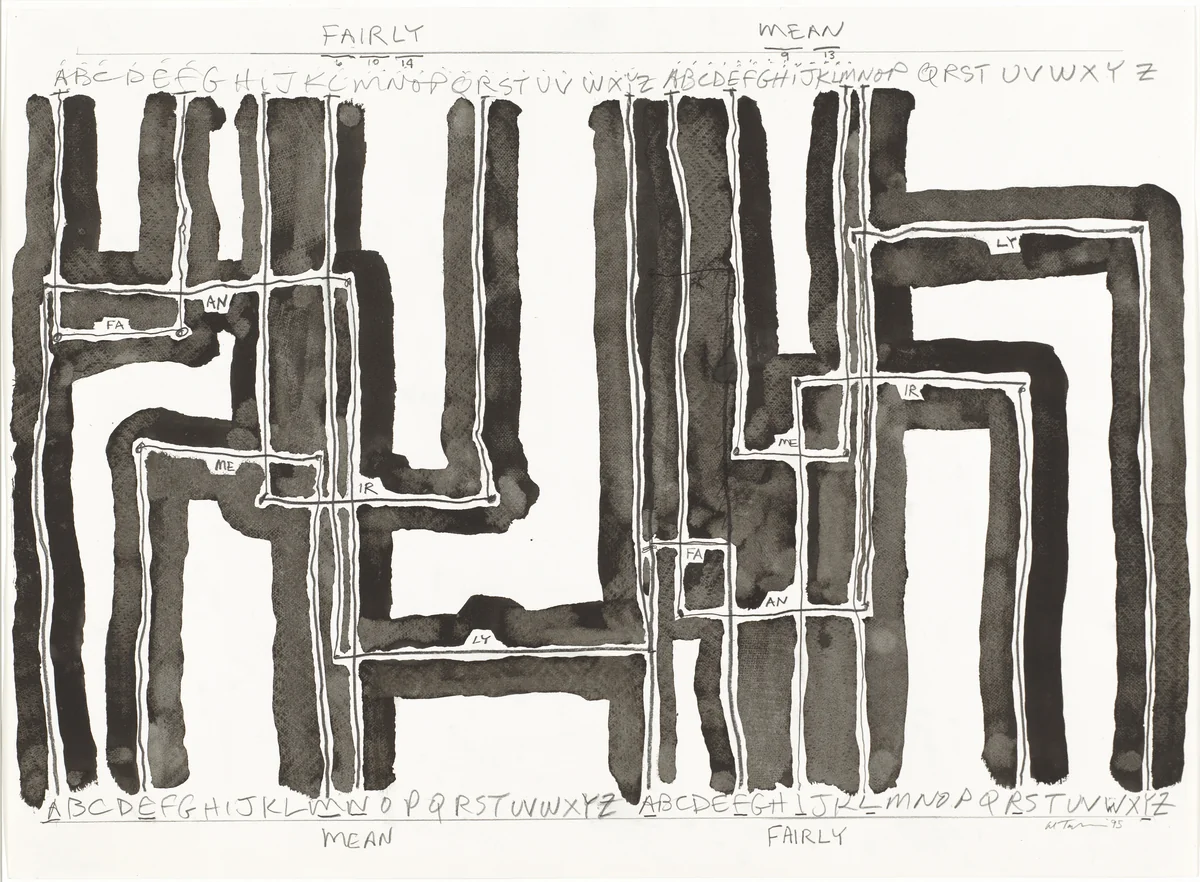 FAIRLY MEAN
6 10 14 9 13
ABCDEFGHIJKLMNOPQRSTUVWXYZ ABCDEFGHIJKLMNOP QRST UVWXY Z
LY
AN
FA
IR
ME
ME
IR
FA
AN
LY
ABCDEFGHIJKLMNOPQRSTUVWXYZ ABCDEFGHIJKLMNOPQRSTUVWXYZ
MEAN FAIRLY
'95